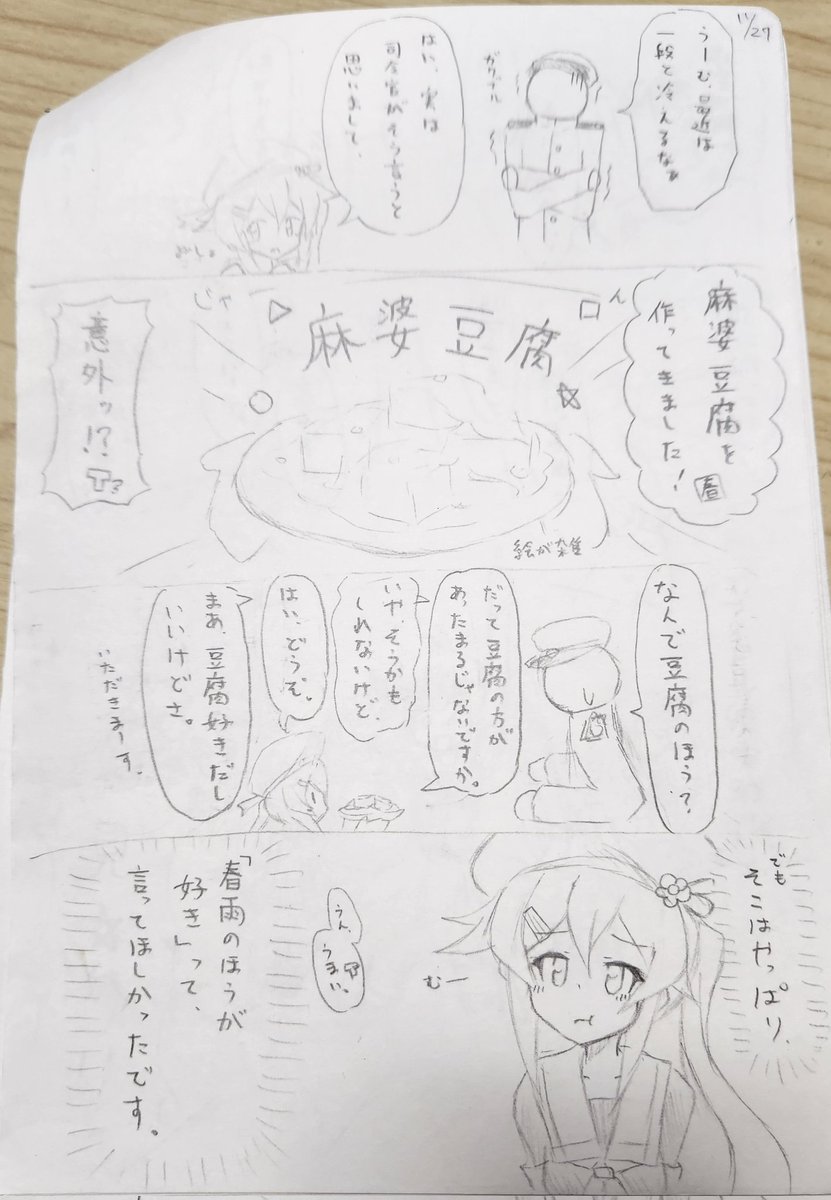 11/27
うーむ、最近は
一段と冷えるなぁ
ガクブル
はい、実は
司令官がそう言うと
思いまして、
よいしょ
麻婆豆腐を
作ってきました!
春
じゃ
ん
麻婆豆腐
絵が雑
意外ッ!?
なんで豆腐のほう?
だって豆腐の方が
あったまるじゃないですか。
いや、そうかも
しれないけど、
はい、どうぞ。
まあ、豆腐好きだし
いいけどさ。
いただきまーす。
でも
そこはやっぱり、
むー
うん、
うまい。
「春雨のほうが
好き」って、
言ってほしかったです。